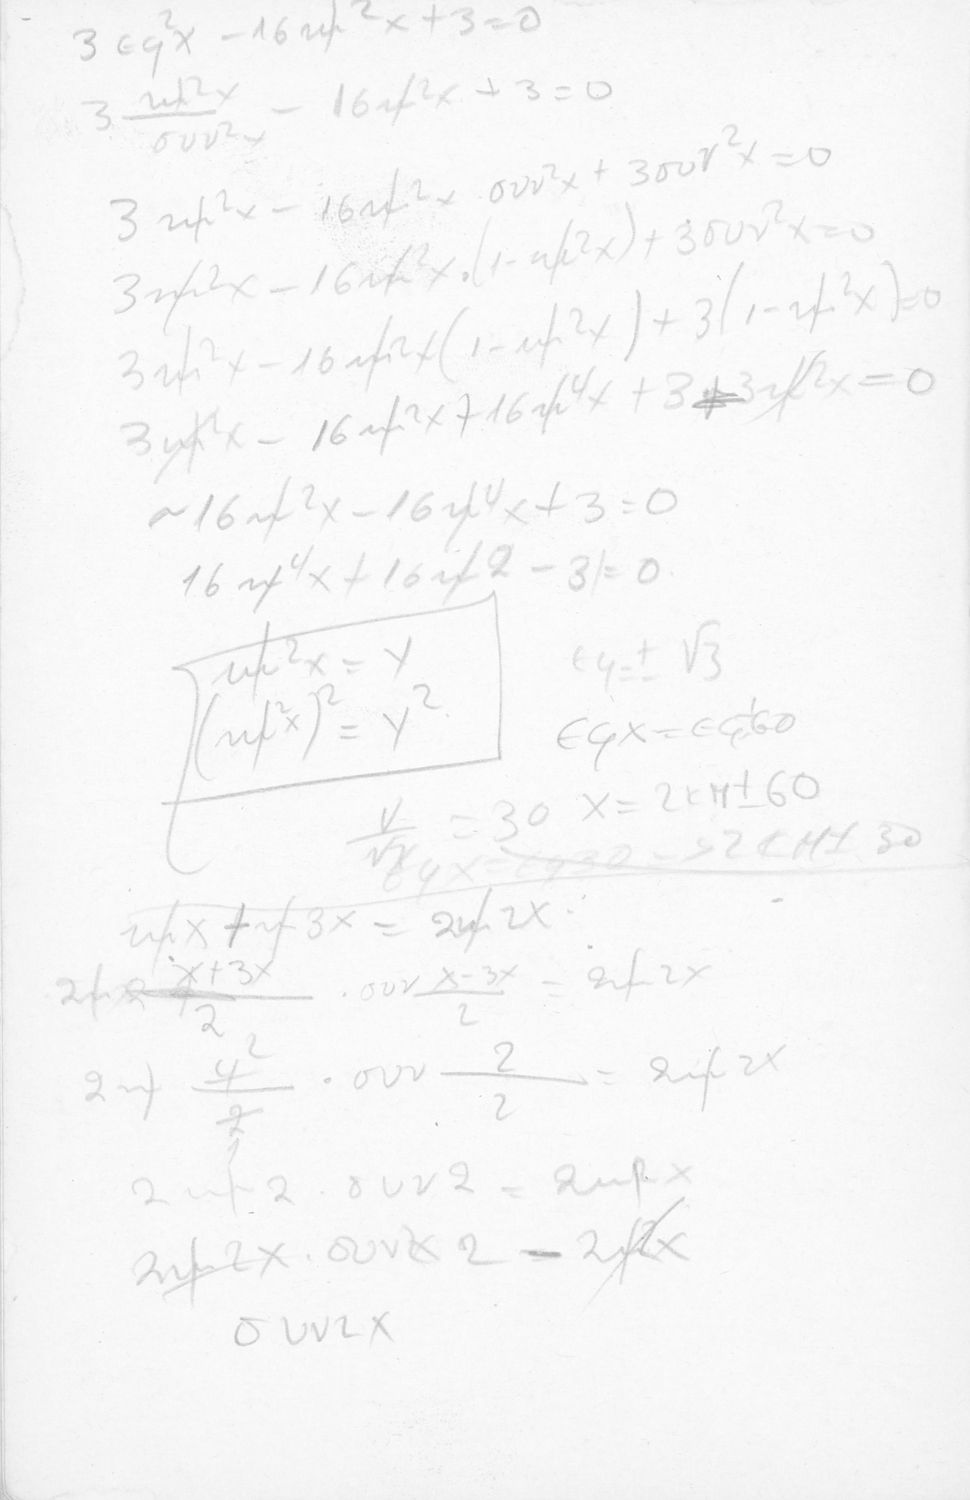 3 εφ²x − 16 ημ²x + 3 = 0
3 ημ²x/συν²x − 16 ημ²x + 3 = 0
3 ημ²x − 16 ημ²x · συν²x + 3 συν²x = 0
3 ημ²x − 16 ημ²x · (1 − ημ²x) + 3 συν²x = 0
3 ημ²x − 16 ημ²x (1 − ημ²x) + 3 (1 − ημ²x) = 0
3 ημ²x − 16 ημ²x + 16 ημ⁴x + 3 − 3 ημ²x = 0
− 16 ημ²x − 16 ημ⁴x + 3 = 0
16 ημ⁴x + 16 ημ2 − 3 = 0
ημ²x = y
(ημ²x)² = y²
εφ = ± √3
εφx = εφ±60
= 30 x = 2κπ ± 60
εφx = εφ30 → 2κπ ± 30
ημx + ημ3x = 2ημ2x
2ημ x+3x/2 · συν x−3x/2 = 2ημ2x
2ημ 4/2 · συν 2/2 = 2ημ2x
2ημ2 · συν2 = 2ημx
2ημ2x · συνx 2 = 2ημ2x
συν2x